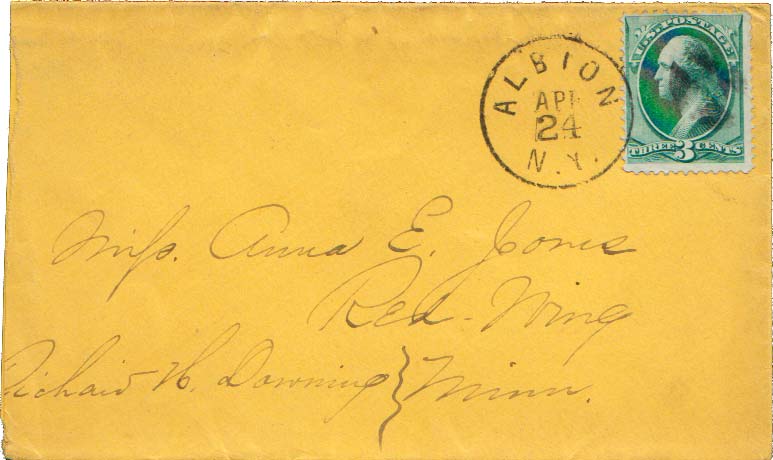 U.S. POSTAGE
THREE 3 CENTS
ALBION
APR
24
N.Y.
Miss. Anna E. Jones
Red-Wing
Richard H. Downing } Minn.